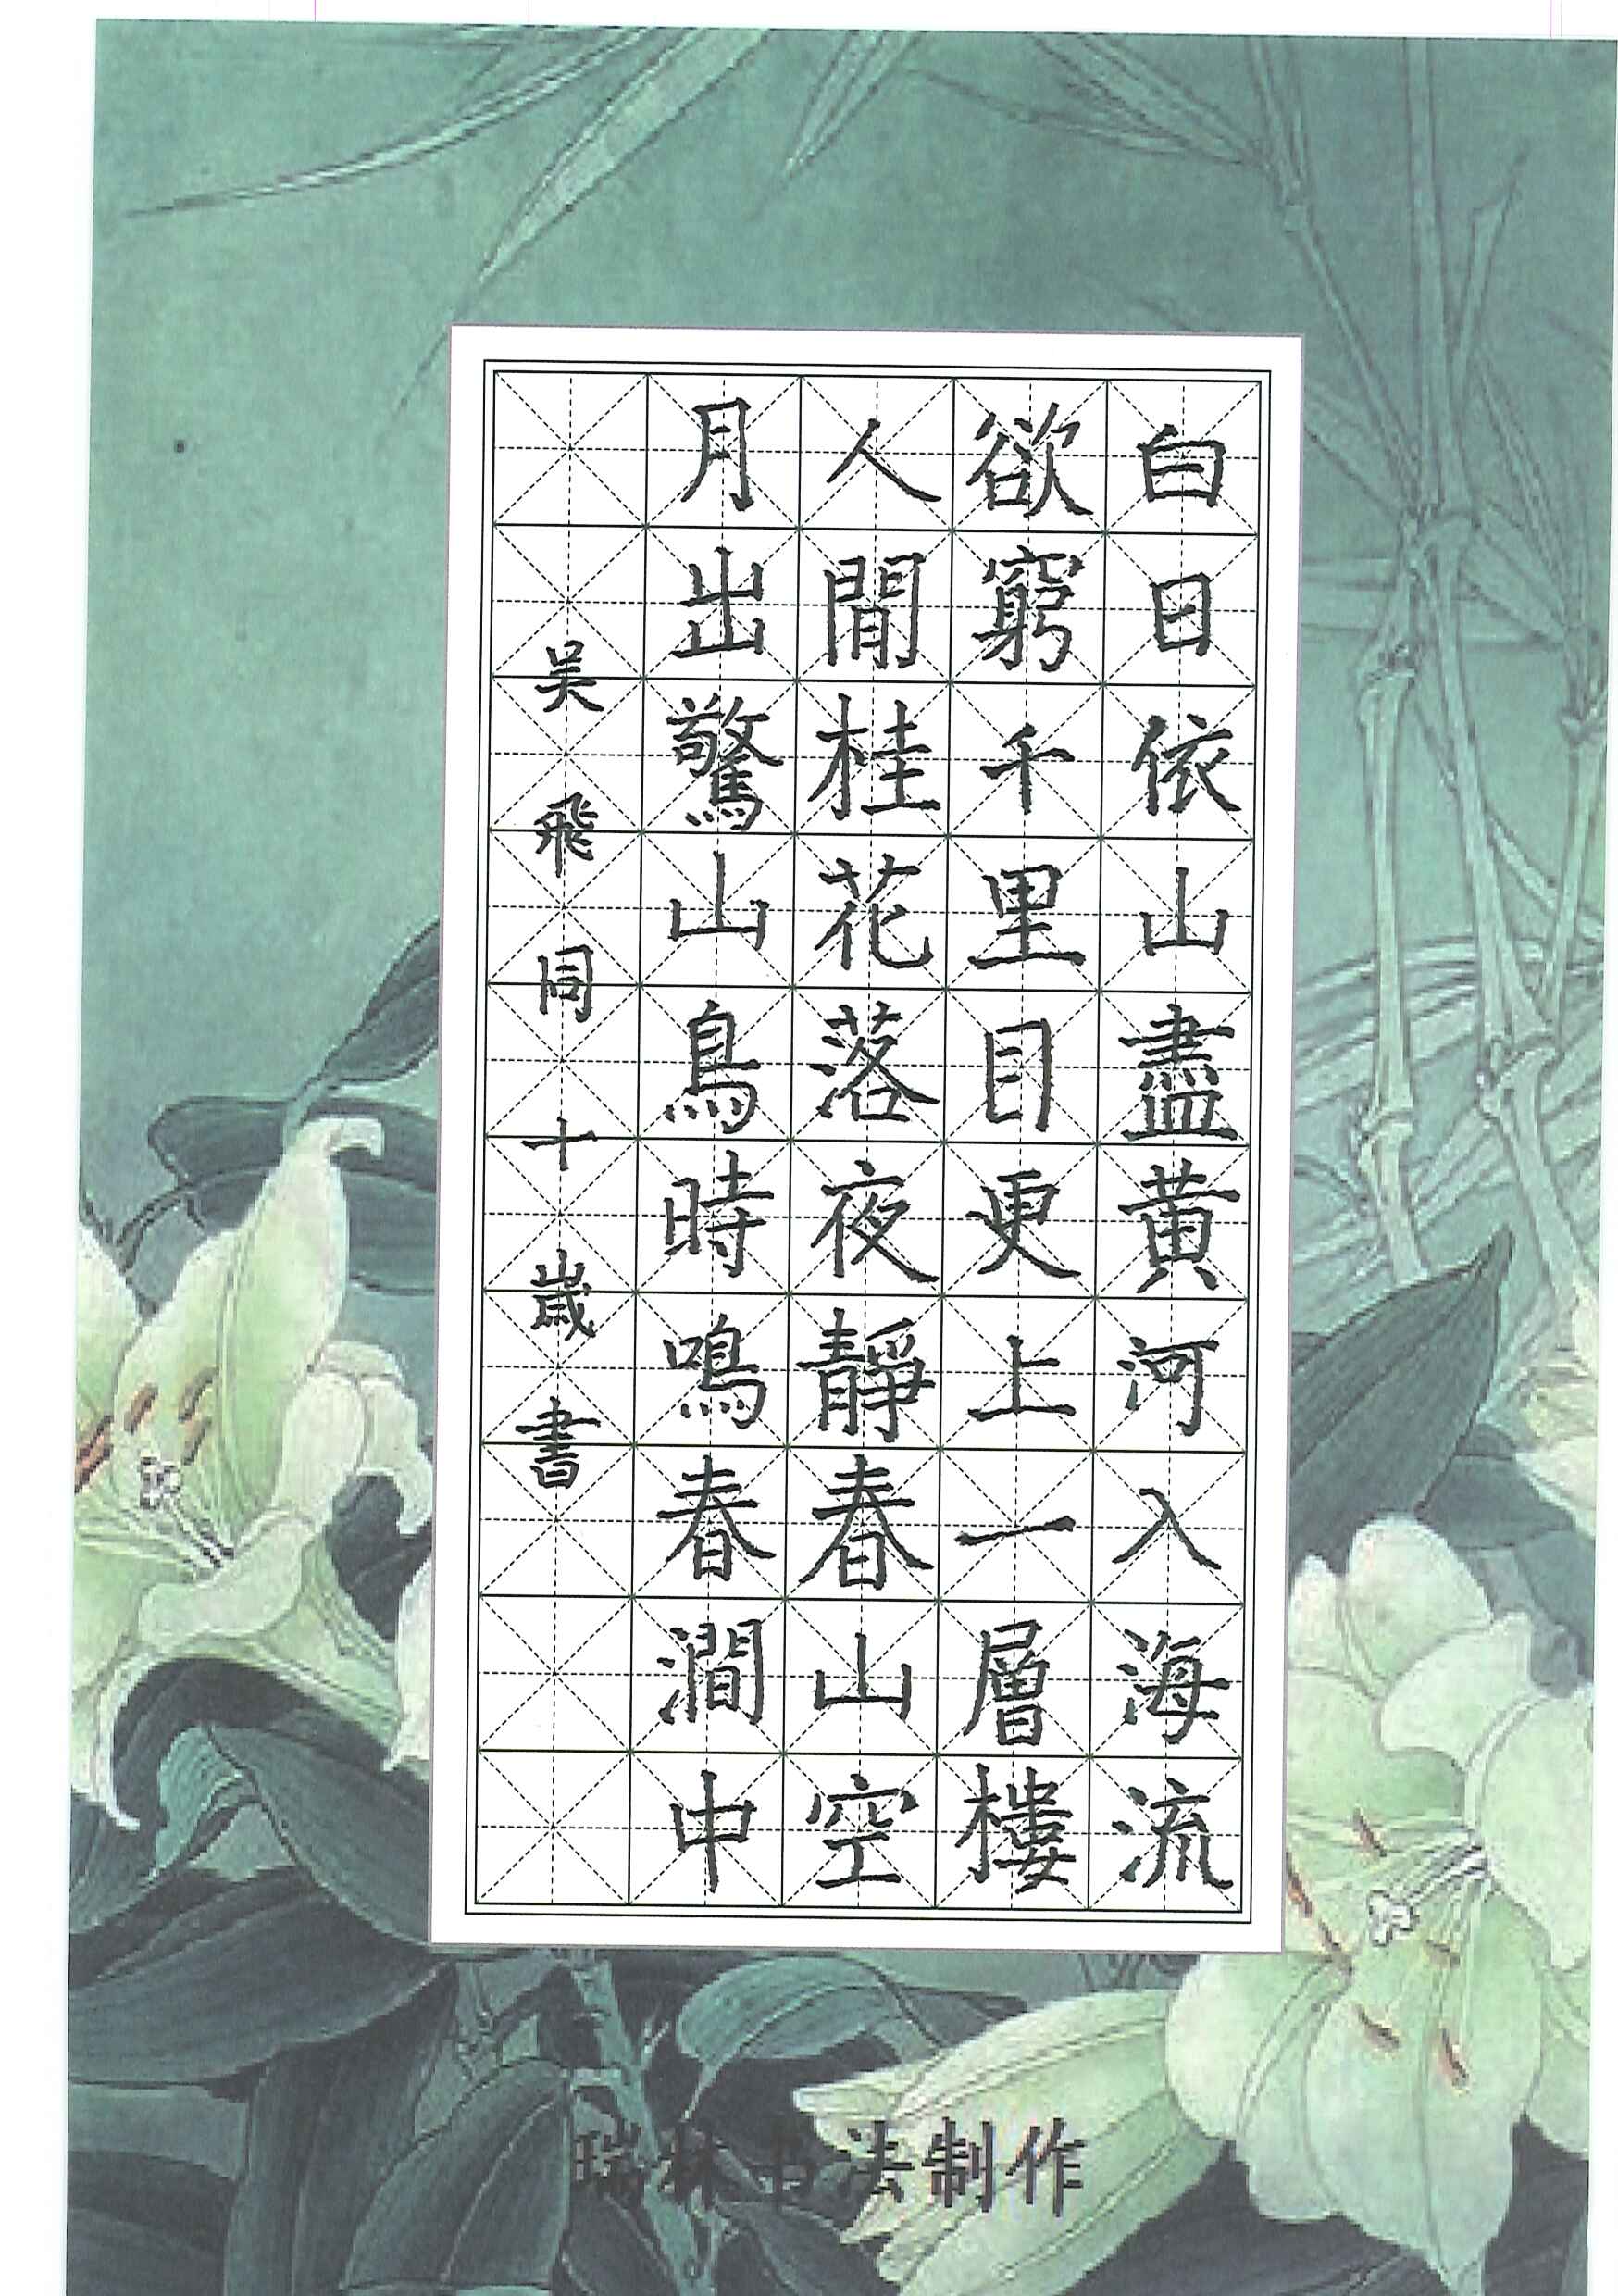 白日依山盡黄河入海流
欲窮千里目更上一層樓
人閒桂花落夜靜春山空
月出驚山鳥時鳴春澗中
吴飛同十歲書
瑞林书法制作